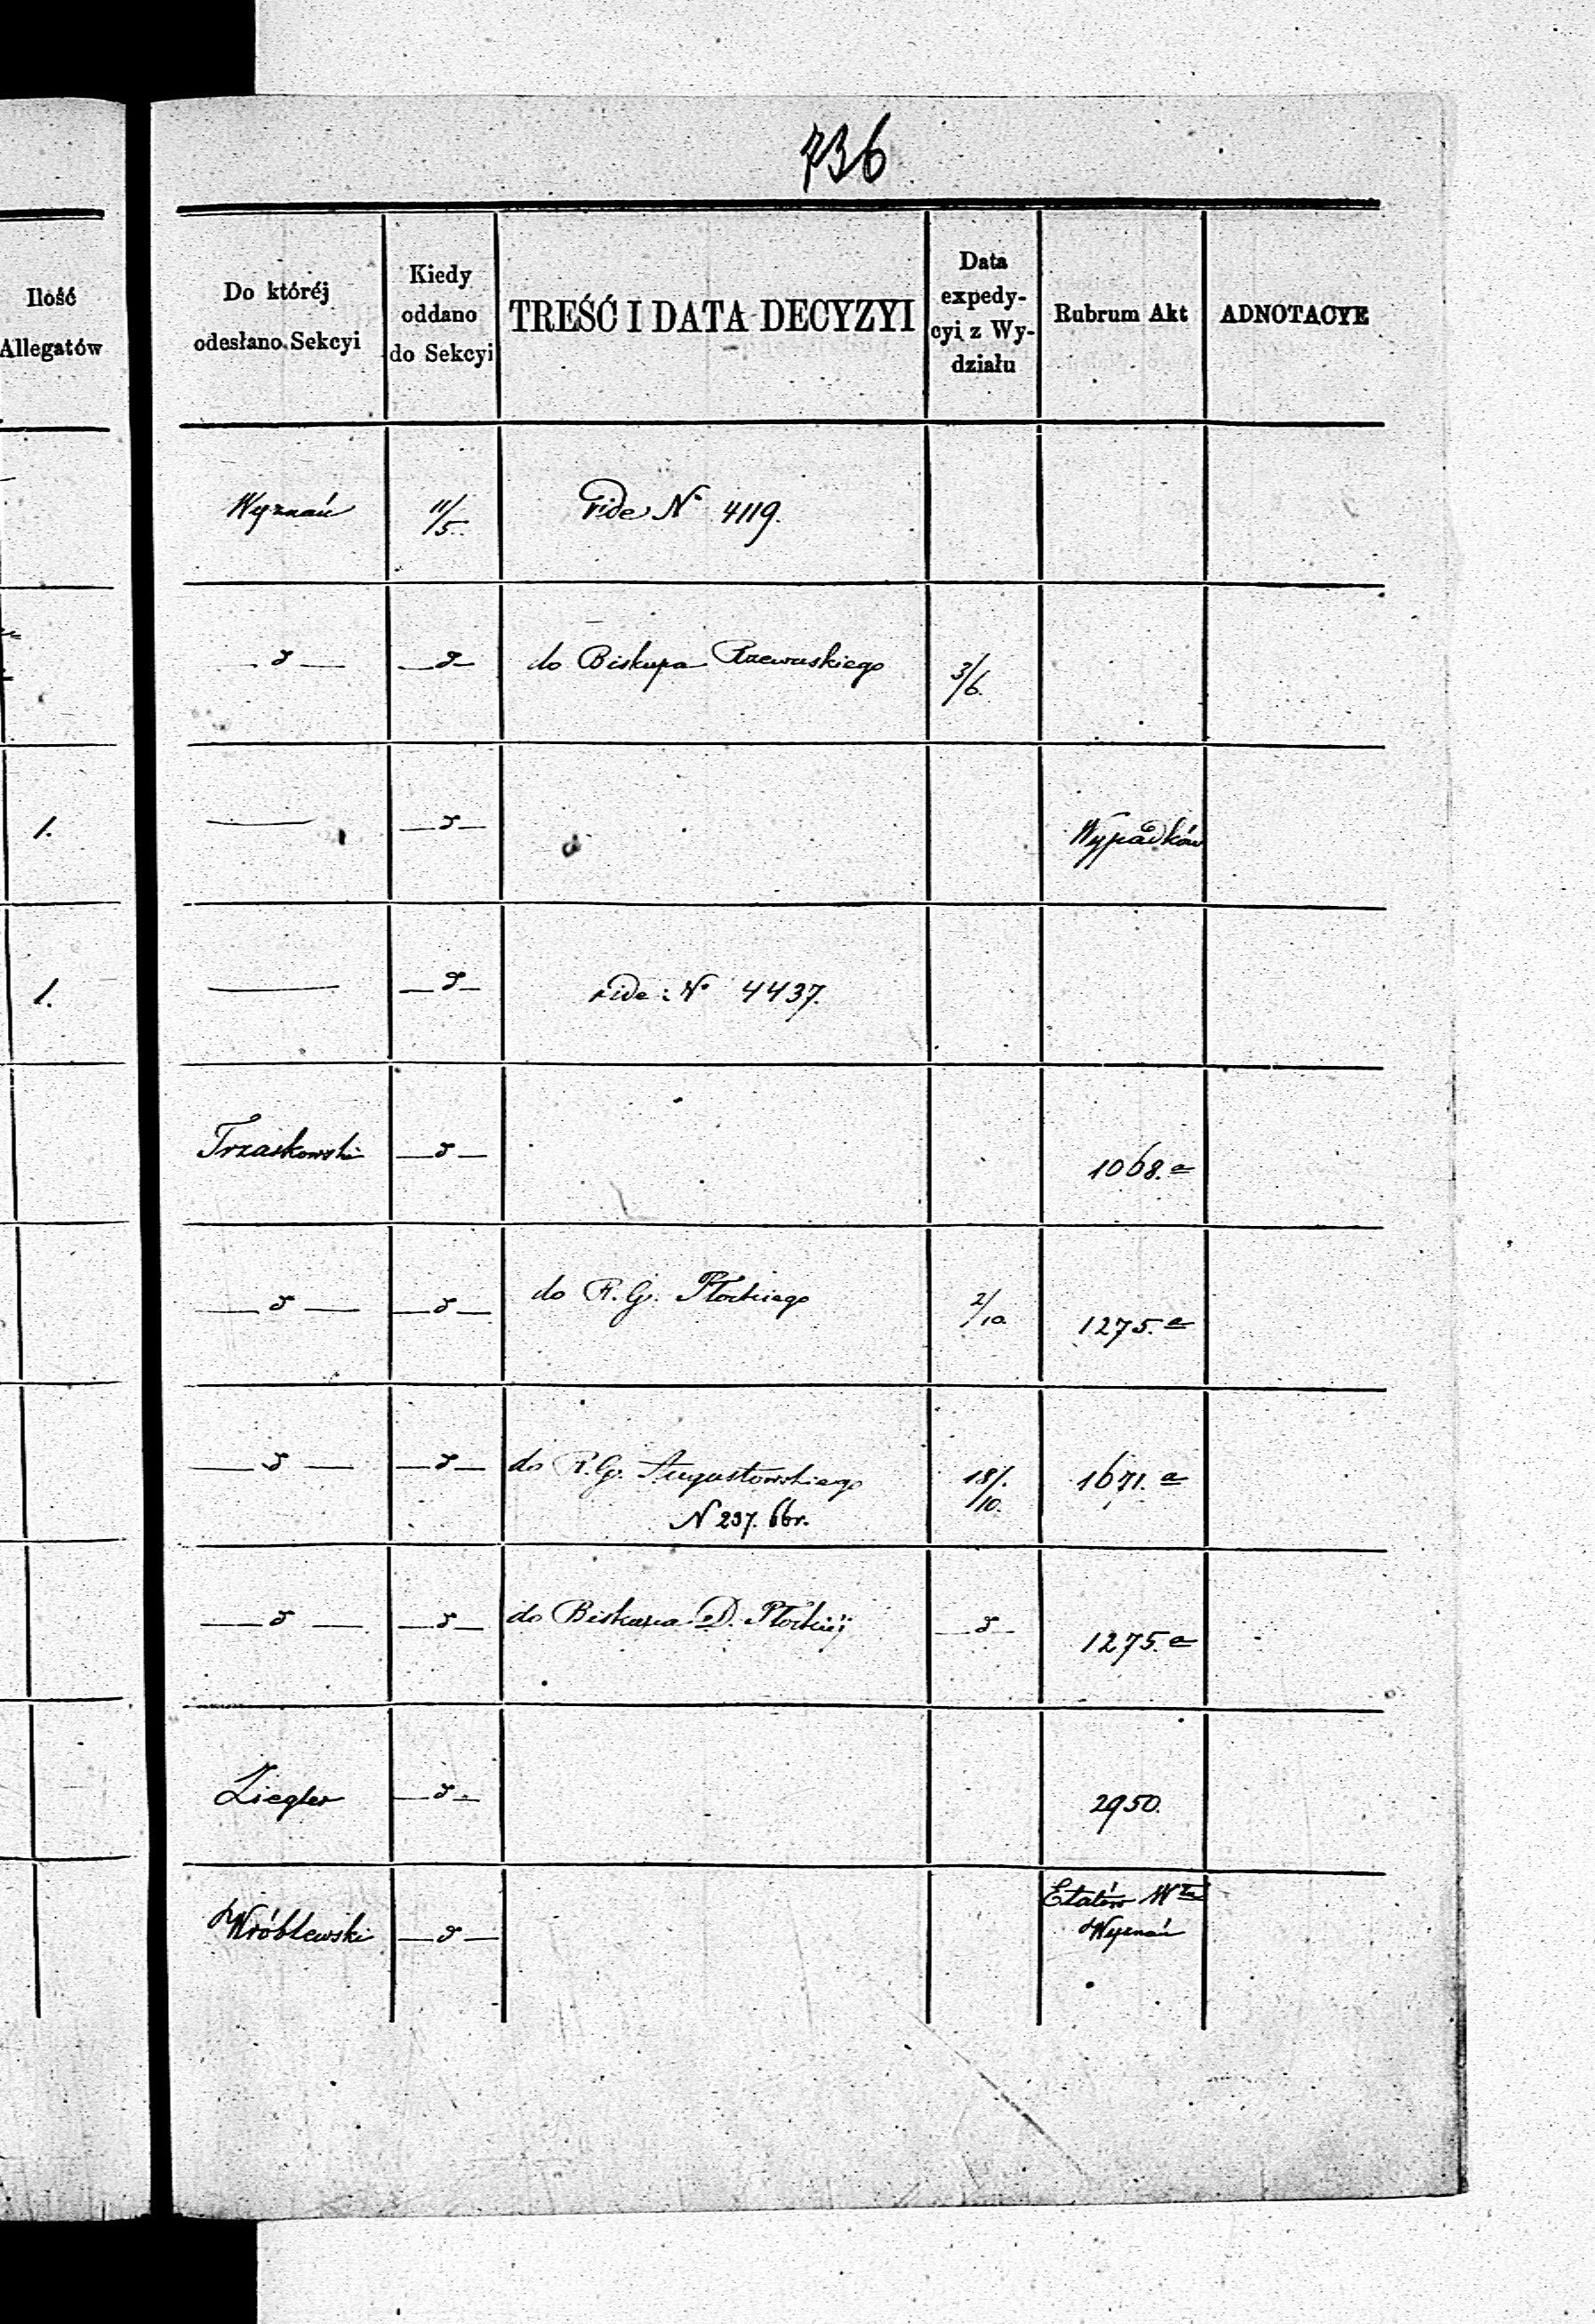 736
Ilość
Allegatów
Do któréj
odesłano Sekcyi
Kiedy
oddano
do Sekcyi
TREŚĆ I DATA DECYZYI
Data
expedy-
cyi z Wy-
działu
Rubrum Akt
ADNOTACYE
Wyznań 11/5. vide N° 4119.
— d — — d — do Biskupa Rzewuskiego 3/6.
1. — — d — Wypadków
1. — — d — vide: N° 4437.
Trzaskowski — d — 1068. a
— d — — d — do R. G. Płockiego 2/10. 1275. a
— d — — d — do R. G. Augustowskiego 18/10. 1671. a
N 237. 6br.
— d — — d — do Biskupa D. Płockiéj — d — 1275. a
Ziegler — d — 2950.
Wróblewski — d — Etatów
Wyznań